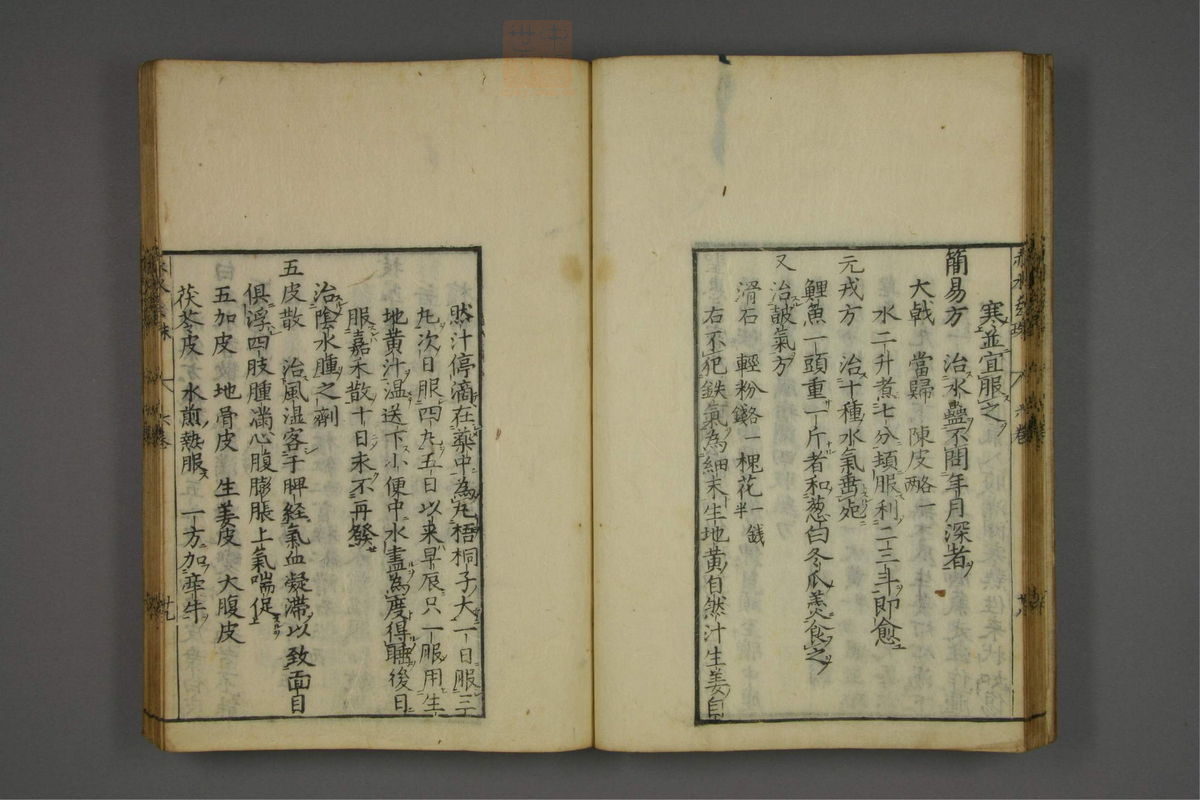 寒並宜服之
簡易方　治水蠱不問年月深者
大戟　當歸　陳皮略一
水二升煮七分頓服利二三斗即愈
元戎方　治十種水氣
鯉魚一頭重一斤者和葱白冬瓜羹食之
又治皷氣方
滑石　輕粉　槐花一錢半
右不犯鉄氣為細末生地黄自然汁生姜自
然汁停滴在藥中為丸梧桐子大一日服三
丸次日服四丸五日以来早辰只一服用生
地黄汁温送下小便中水盡為度得睡後日
服嘉禾散十日永不再發
治陰水腫之劑
五皮散　治風湿客于脾経氣血凝滞以致面目
俱浮四肢腫滿心腹膨脹上氣喘促
五加皮　地骨皮　生姜皮　大腹皮
茯苓皮　水煎熱服　一方加牽牛